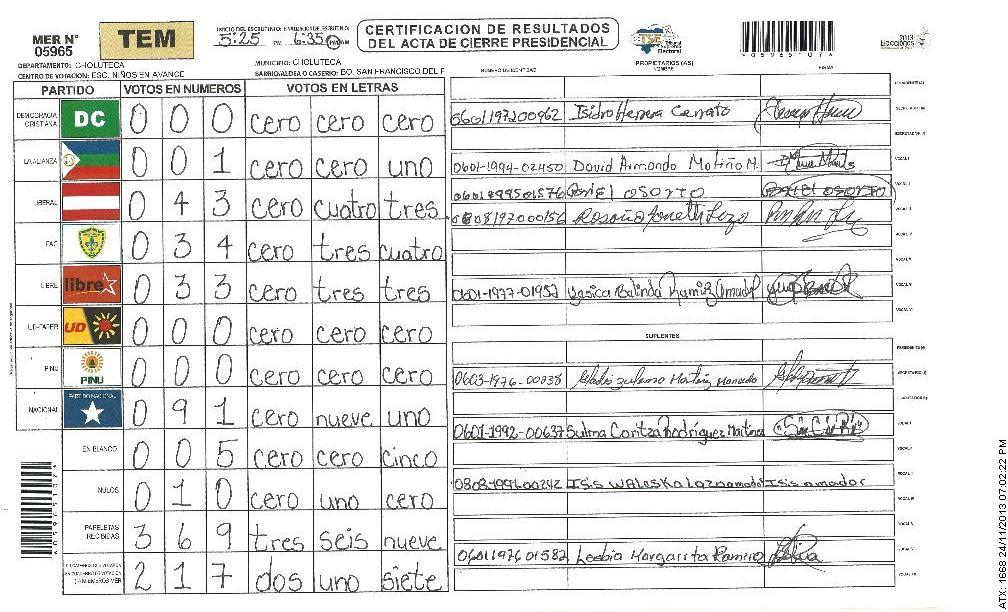 MER N° 05965
TEM
INICIO DEL ESCRUTINIO: 5:25 PM
FINALIZACION DE ESCRUTINIO: 6:35 PM
CERTIFICACION DE RESULTADOS
DEL ACTA DE CIERRE PRESIDENCIAL
TSE
2013
Elecciones
DEPARTAMENTO: CHOLUTECA
MUNICIPIO: CHOLUTECA
CENTRO DE VOTACION: ESC. NIÑOS EN AVANCE
BARRIO/ALDEA O CASERIO: BO. SAN FRANCISCO DEL P
NUMERO DE IDENTIDAD
PROPIETARIOS (AS)
NOMBRE
FIRMA
PARTIDO VOTOS EN NUMEROS VOTOS EN LETRAS
DEMOCRACIA CRISTIANA DC 0 0 0 cero cero cero
LA ALIANZA 0 0 1 cero cero uno
LIBERAL 0 4 3 cero cuatro tres
PAC 0 3 4 cero tres cuatro
LIBRE libre 0 3 3 cero tres tres
UD-FAPER UD 0 0 0 cero cero cero
PINU PINU 0 0 0 cero cero cero
NACIONAL PARTIDO NACIONAL 0 9 1 cero nueve uno
EN BLANCO 0 0 5 cero cero cinco
NULOS 0 1 0 cero uno cero
PAPELETAS RECIBIDAS 3 6 9 tres seis nueve
2 1 7 dos uno siete
0601197200962 Isidro Herrera Carrato
0601-1994-02450 David Armando Motiño M.
osorto
0808197000156
0601-1977-01952
SUPLENTES
0603-1976-00238
0601-1992-00637 Sulma Coritza Rodríguez Martinez
Isis Waleska Lazo amador Isis amador
0601197601582 Leebia Margarita Ramirez
ATX: 1668 24/11/2013 07:02:22 PM